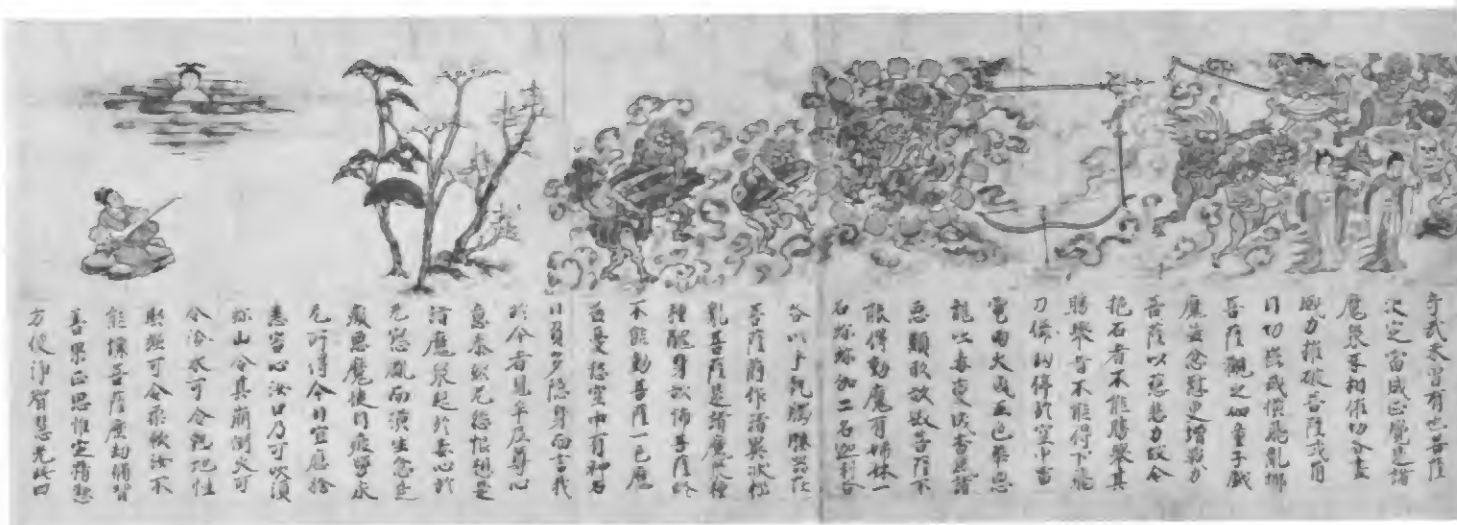 奇哉未曾有也菩薩
決定當成正覺是諸
魔衆互相催切各盡
威力摧破菩薩或角
目切齒或橫飛亂擲
菩薩觀之如童子戲
魔益忿懟更增戰力
菩薩以慈悲力故令
抱石者不能勝舉其
勝舉者不能得下飛
刀儛劒停於空中雷
電雨火成五色華惡
龍吐毒變成香風諸
惡類形欲毀菩薩不
能得動魔有姉妹一
名弥弥伽二名迦利各
各以手執髑髏器在
菩薩前作諸異狀惱
亂菩薩是諸魔衆種
種醜身欲怖菩薩終
不能動菩薩一毛魔
益憂愁空中有神名
曰負多隱身而言我
於今者見牟尼尊心
意泰然无怨恨想是
諸魔衆起於毒心於
无怨處而橫生忿
癡惡魔徒自疲勞永
无所得今日宜應捨
恚害心汝口乃可吹須
弥山令其崩倒火可
令冷水可令熱地性
堅强可令柔軟汝不
能壞菩薩歷劫脩習
善果正思惟定精懃
方便淨智慧光此四